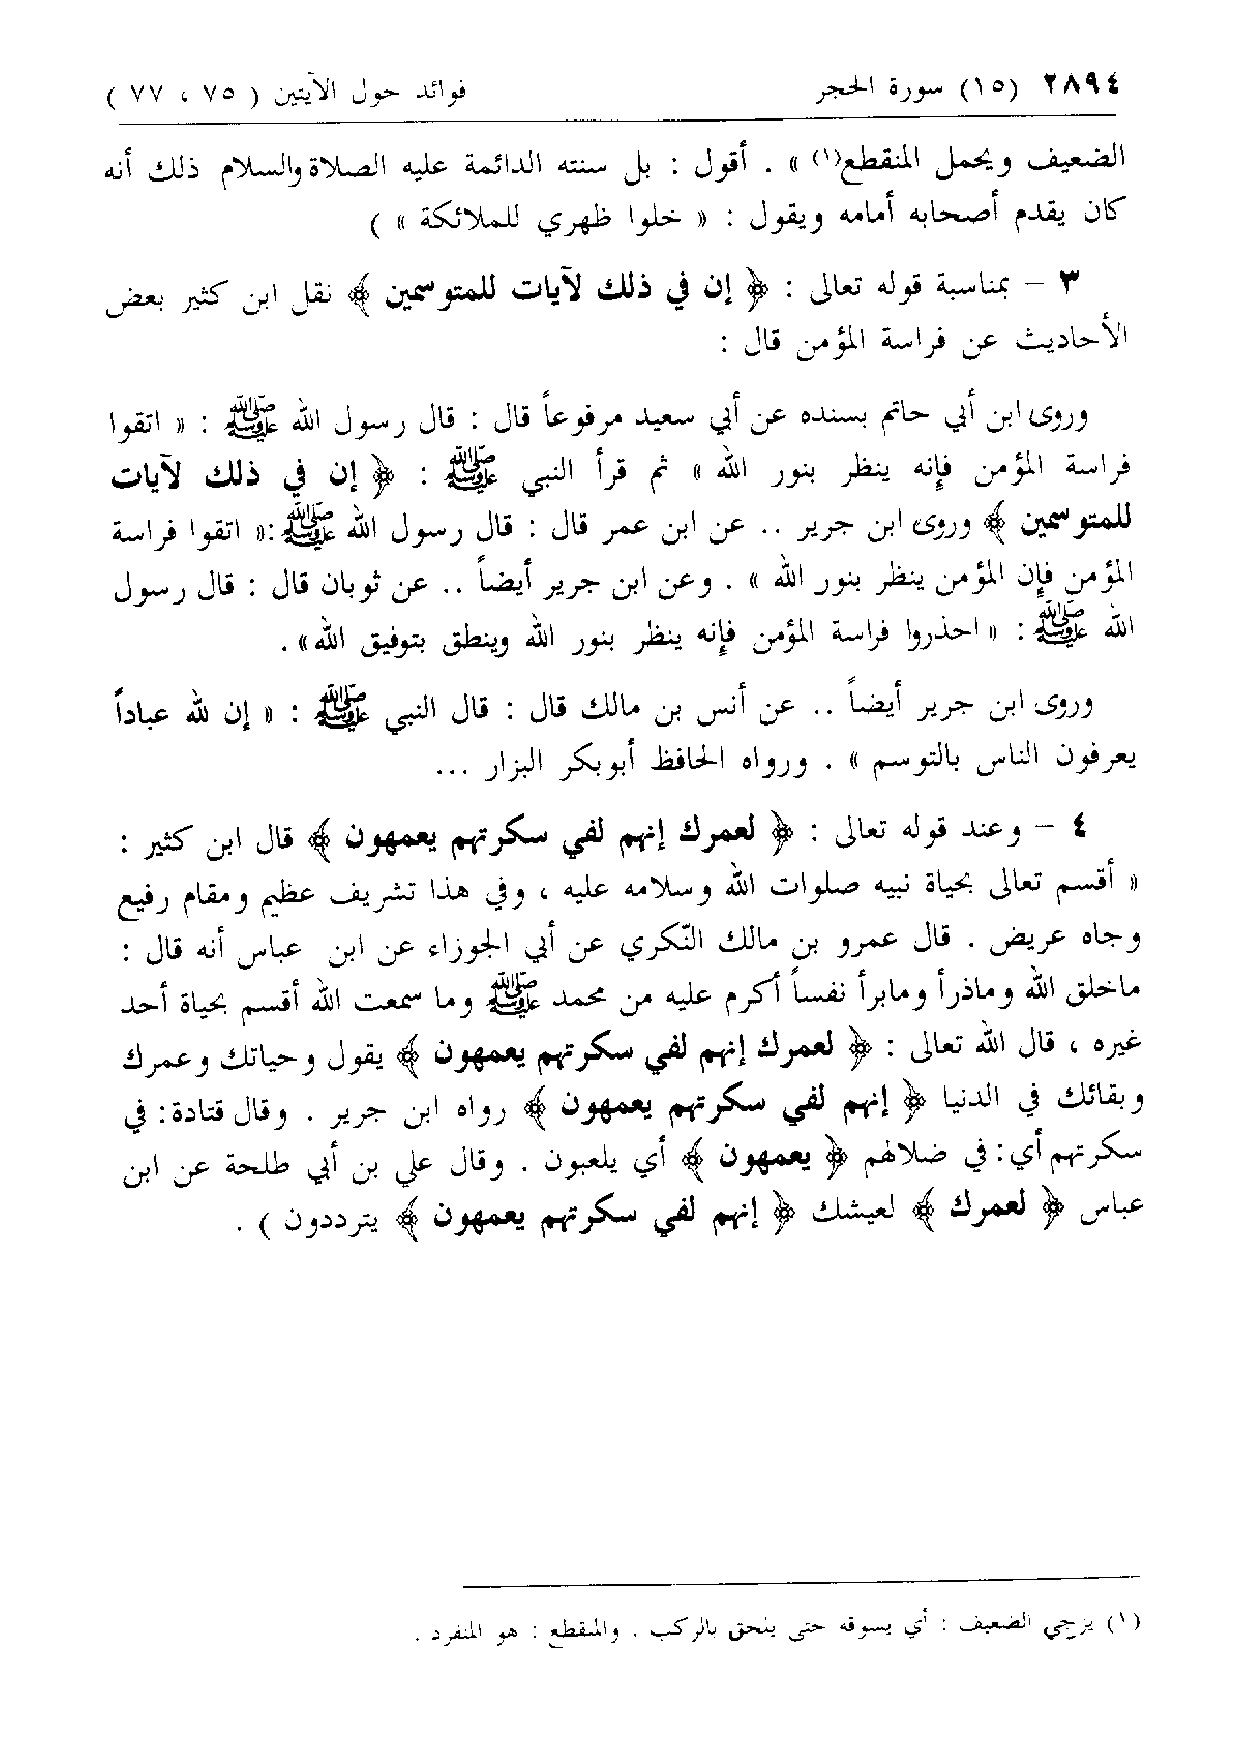 ٢٨٩٤ (١٥) سورة الحجر فوائد حول الآيتين ( ٧٥ ، ٧٧ )
الضعيف ويحمل المنقطع(١) » . أقول : بل سنته الدائمة عليه الصلاة والسلام ذلك أنه
كان يقدم أصحابه أمامه ويقول : « خلوا ظهري للملائكة » )
٣ – بمناسبة قوله تعالى : ﴿ إن في ذلك لآيات للمتوسمين ﴾ نقل ابن كثير بعض
الأحاديث عن فراسة المؤمن قال :
وروى ابن أبي حاتم بسنده عن أبي سعيد مرفوعاً قال : قال رسول الله ﷺ : « اتقوا
فراسة المؤمن فإنه ينظر بنور الله » ثم قرأ النبي ﷺ : ﴿ إن في ذلك لآيات
للمتوسمين ﴾ وروى ابن جرير .. عن ابن عمر قال : قال رسول الله ﷺ :« اتقوا فراسة
المؤمن فإن المؤمن ينظر بنور الله » . وعن ابن جرير أيضاً .. عن ثوبان قال : قال رسول
الله ﷺ : « احذروا فراسة المؤمن فإنه ينظر بنور الله وينطق بتوفيق الله» .
وروى ابن جرير أيضاً .. عن أنس بن مالك قال : قال النبي ﷺ : « إن لله عباداً
يعرفون الناس بالتوسم » . ورواه الحافظ أبوبكر البزار ...
٤ – وعند قوله تعالى : ﴿ لعمرك إنهم لفي سكرتهم يعمهون ﴾ قال ابن كثير :
« أقسم تعالى بحياة نبيه صلوات الله وسلامه عليه ، وفي هذا تشريف عظيم ومقام رفيع
وجاه عريض . قال عمرو بن مالك النّكري عن أبي الجوزاء عن ابن عباس أنه قال :
ماخلق الله وماذرأ ومابرأ نفساً أكرم عليه من محمد ﷺ وما سمعت الله أقسم بحياة أحد
غيره ، قال الله تعالى : ﴿ لعمرك إنهم لفي سكرتهم يعمهون ﴾ يقول وحياتك وعمرك
وبقائك في الدنيا ﴿ إنهم لفي سكرتهم يعمهون ﴾ رواه ابن جرير . وقال قتادة: في
سكرتهم أي: في ضلالهم ﴿ يعمهون ﴾ أي يلعبون . وقال علي بن أبي طلحة عن ابن
عباس ﴿ لعمرك ﴾ لعيشك ﴿ إنهم لفي سكرتهم يعمهون ﴾ يترددون ) .
(١) يزجي الضعيف : أي يسوقه حتى يلحق بالركب . والمنقطع : هو المنفرد .